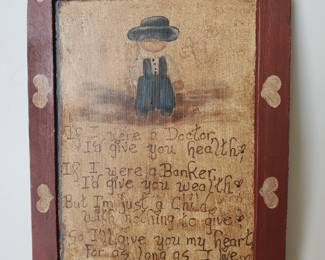 If I were a Doctor,
I'd give you health;
If I were a Banker,
I'd give you wealth
But I'm just a Child
with nothing to give
So I'll give you my heart
for as long as I